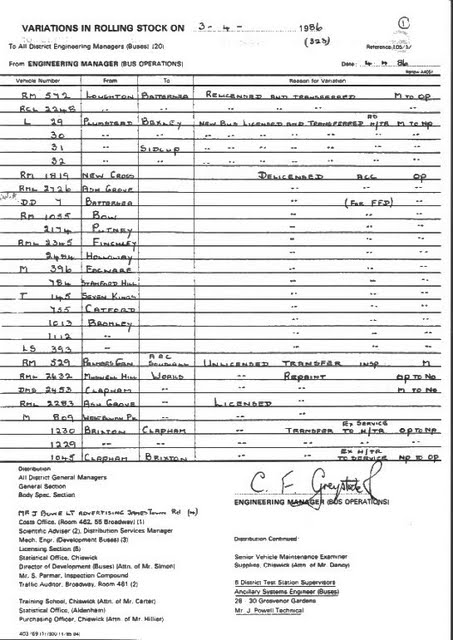 VARIATIONS IN ROLLING STOCK ON 3-4- 1986 (1)
(323)
To All District Engineering Managers (Buses) (20) Reference
From ENGINEERING MANAGER (BUS OPERATIONS) Date 4 4 86
Vehicle Number From To Reason for Variation
RM 572 LOUGHTON BATTERSEA RELICENSED AND TRANSFERRED M TO OP
RCL 2248 " " " " " "
L 29 PLUMSTEAD BEXLEY NEW BUS LICENSED AND TRANSFERRED H/TR M TO NO
30 " " " " " " " " "
31 " SIDCUP " " " " " " "
32 " " " " " " " " "
RM 1819 NEW CROSS DELICENSED ACC OP
RML 2726 ASH GROVE " " "
DD 7 BATTERSEA " (FOR FFD) "
RM 1055 BOW " " "
2174 PUTNEY " " "
RML 2345 FINCHLEY " " "
2484 HOLLOWAY " " "
M 396 EDGWARE " " "
784 STAMFORD HILL " " "
T 145 SEVEN KINGS " " "
755 CATFORD " " "
1013 BROMLEY " " "
1112 " " " "
LS 393 " " " "
RM 529 PALMERS GRN AEC SOUTHALL UNLICENSED TRANSFER INSP M
RML 2632 MUSWELL HILL WORKS " REPAINT OP TO NO
DMS 2453 CLAPHAM " " " M TO NO
RML 2283 ASH GROVE " LICENSED " "
M 809 WESTBOURNE PK " " " "
1230 BRIXTON CLAPHAM " TRANSFER EX SERVICE TO H/TR OP TO NO
1229 " " " " " "
1045 CLAPHAM BRIXTON " " EX H/TR TO SERVICE NO TO OP
Distribution
All District General Managers
General Section
Body Spec. Section
ENGINEERING MANAGER (BUS OPERATIONS)
MR J BOWIE LT ADVERTISING JAMESTOWN Rd
Costs Office, (Room 462, 55 Broadway) (1)
Scientific Adviser (2), Distribution Services Manager
Mech. Engr. (Development Buses) (3)
Licensing Section (8)
Statistical Office, Chiswick
Director of Development (Buses) (Attn. of Mr. Simon)
Mr. S. Parmar, Inspection Compound
Traffic Auditor, Broadway, Room 461 (2)
Training School, Chiswick (Attn. of Mr. Carter)
Statistical Office, (Aldenham)
Purchasing Officer, Chiswick (Attn. of Mr. Hillier)
Distribution Continued
Senior Vehicle Maintenance Examiner
Supplies, Chiswick (Attn. of Mr. Dancy)
8 District Test Station Supervisors
Ancillary Systems Engineer (Buses)
28 - 30 Grosvenor Gardens
Mr. J Powell Technical